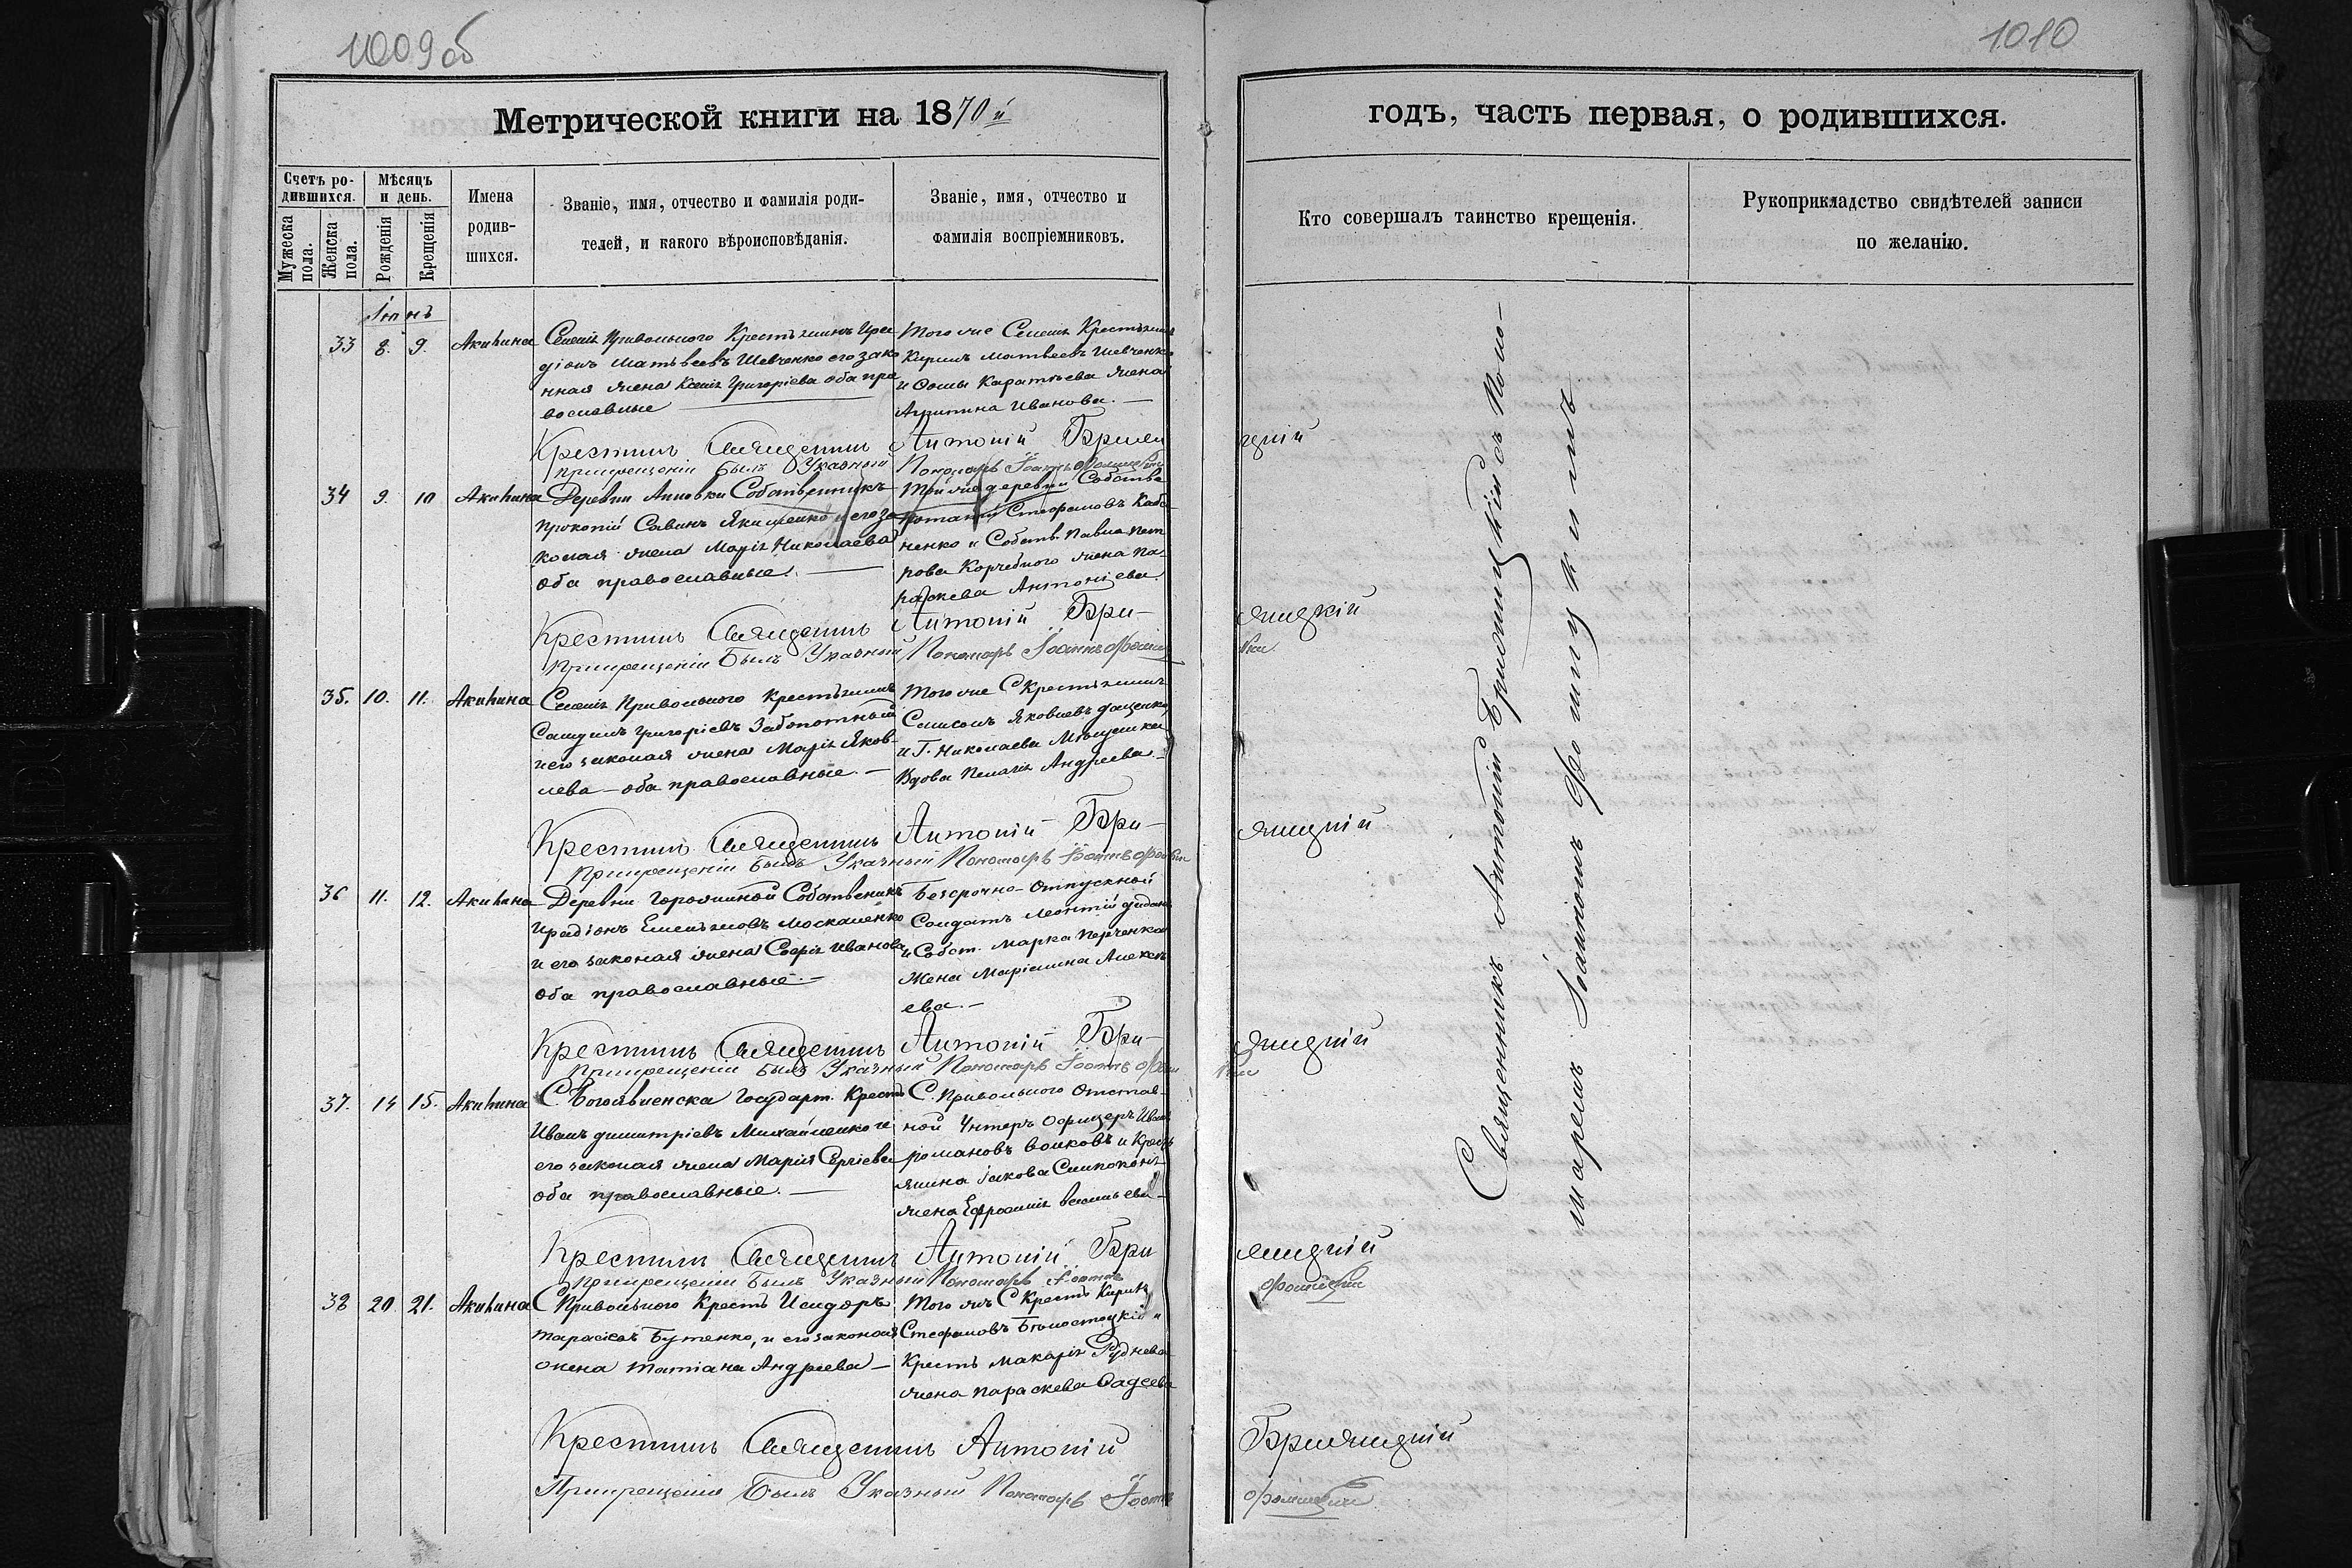 1009об
1010
Метрической книги на 1870й
годъ, часть первая, о родившихся.
Счетъ ро-
дившихся.
Мужеска
пола.
Женска
пола.
Мѣсяцъ
и день.
Рожденія
Крещенія
Имена
родив-
шихся.
Званіе, имя, отчество и фамилія роди-
телей, и какого вѣроисповѣданія.
Званіе, имя, отчество и
фамилія воспріемниковъ.
Кто совершалъ таинство крещенія.
Рукоприкладство свидѣтелей записи
по желанію.
Іюнь
33 8. 9. Акилина
Селенія Привольного Крестьянинъ Ири
діонъ Матвеевъ Шевченко его зако
нная жена Ксенія Григоріева оба пра
вославные
Того же Селенія Крестьянинъ
Кирилъ Матвеевъ Шевченко
и Фомы Каратѣева жена
Агрипина Иванова.
Крестилъ Священникъ Антоній Брилян
цкій
При крещеніи былъ Указный Пономарь Іоаннъ
34 9. 10 Акилина
Деревни Анновки Собственникъ
Прокопій Савинъ Якименко и его за
коная жена Марія Николаева
оба православные.
Той же деревни Собстве
Потапій Стефановъ Каба
ненко и Собств. Павла Пет
рова Корчебного жена Па-
раскева Антоніева.
Крестилъ Священникъ Антоній Бри-
лянцкій
При крещеніи Былъ Указный Пономарь Іоаннъ
35. 10. 11. Акилина
Селенія Привольного Крестьянинъ
Самуилъ Григоріевъ Заболотный
и его законая жена Марія Яков-
лева – оба православные. –
Того же С Крестьянинъ
Самсонъ Яковлевъ Даценко
и Г. Николаева
Вдова Пелагія Андреева. –
Крестилъ Священникъ Антоній Бри-
лянцкій
При крещеніи былъ Указный Пономарь Іоаннъ
36 11. 12. Акилина
Деревни Горожиной Собственикъ
Ирадіонъ Емельяновъ Москаленко
и его законая жена Софія Иванова
оба православные. –
Безсрочно-Отпускной
Солдатъ Леонтій
и Собст. Марка Перченка
Жена Маріамна Алексѣ
ева. –
Крестилъ Священникъ Антоній Бри-
лянцкій
При крещеніи былъ Указный Пономарь Іоаннъ
37. 14 15. Акилина
С. Богоявленска Государт. Крест
Иванъ Димитріевъ Михайленко и
его законая жена Марія Сергіева
оба православные. –
С. Привольного Отстав-
ной Унтеръ Офицеръ Иванъ
Романовъ Волковъ и Кресть
янина Іакова
жена Ефросинія Василъева –
Крестилъ Священникъ Антоній Бри
лянцкій
При крещеніи Былъ Указный Пономарь Іоаннъ
38 20. 21. Акилина
С Привольного Крестъ Исидоръ
Тарасіевъ Бутенко, и его законая
жена Татіана Андреева –
Того жъ С Крестъ Кирилъ
Стефановъ Бѣлостоцкій и
Крестъ Макарія Руднева
жена Параскева Фадеева
Крестилъ Священникъ Антоній
Брилянцкій
При крещеніи Былъ Указный Пономарь Іоаннъ
Священникъ Антоній Брилянцкій съ Поно-
маремъ Іоанномъ